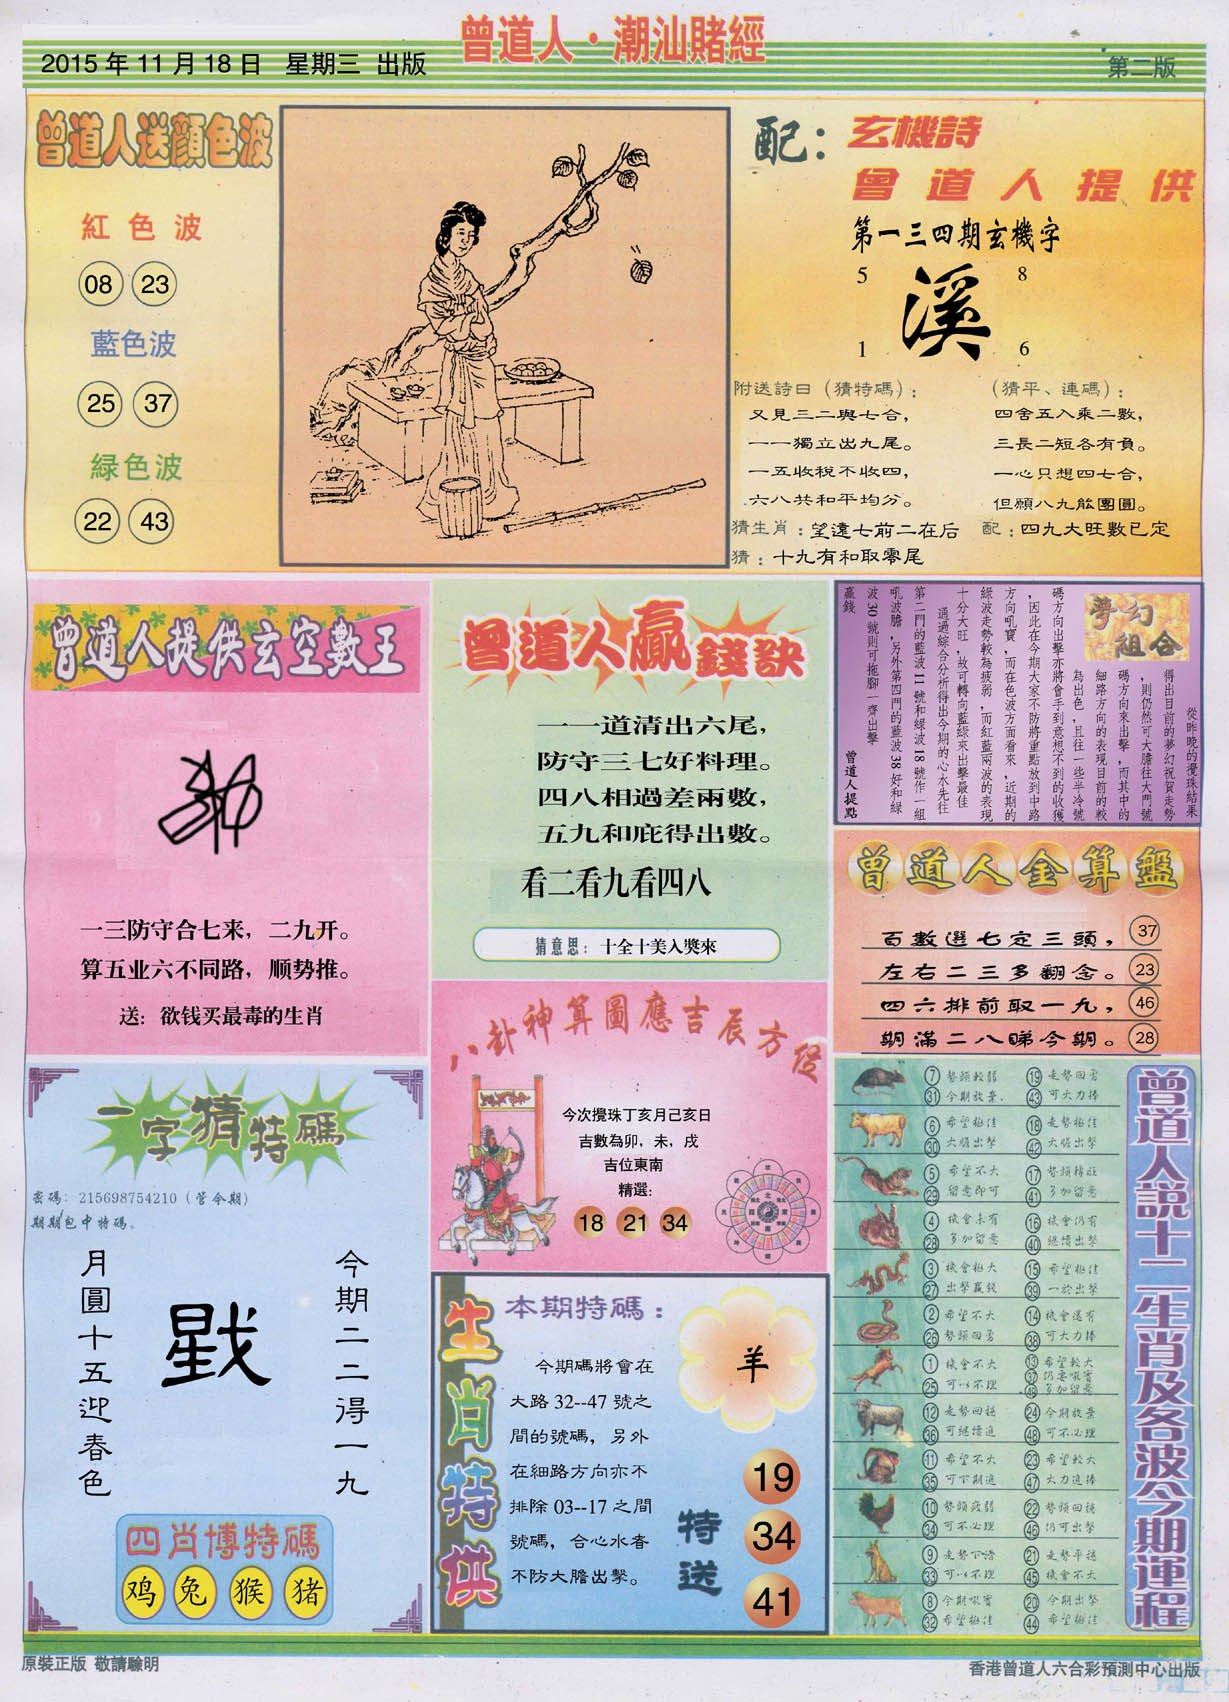 曾道人·潮汕賭經
2015年11月18日 星期三 出版
第二版
曾道人送顏色波
紅色波
08 23
藍色波
25 37
緑色波
22 43
配：玄機詩
曾道人提供
第一三四期玄機字
5 8
溪
1 6
附送詩曰（猜特碼）：
又見三二與七合，
一一獨立出九尾。
一五收稅不收四，
六八共和平均分。
（猜平、連碼）：
四舍五入乘二數，
三長二短各有負。
一心只想四七合，
但願八九能團圓。
猜生肖：望遠七前二在后 配：四九大旺數已定
猜：十九有和取零尾
曾道人提供玄空數王
一三防守合七来，二九开。
算五业六不同路，顺势推。
送：欲钱买最毒的生肖
曾道人贏錢訣
一一道清出六尾，
防守三七好料理。
四八相過差兩數，
五九和庇得出數。
看二看九看四八
猜意思：十全十美入獎來
夢幻組合
從昨晚的攪珠結果
得出目前的夢幻祝賀走勢
，則仍然可大膽往大門號
碼方向來出擊，而其中的
細路方向的表現目前的較
為出色，且往一些半冷號
碼方向出擊亦將會手到意想不到的收獲
，因此在今期大家不防將重點放到中路
方向吼寶，而在色波方面看來，近期的
綠波走勢較為疲弱，而紅藍兩波的表現
十分大旺，故可轉向藍綠來出擊最佳
通過綜合分析得出今期的心水先往
第二門的藍波11號和綠波18號作一組
吼波膽，另外第四門的藍波38好和綠
波30號則可拖腳一齊出擊
贏錢
曾道人提點
曾道人金算盤
百數選七定三頭， 37
左右二三多翻念。 23
四六排前取一九， 46
期滿二八睇今期。 28
八卦神算圖應吉辰方位
今次攪珠丁亥月己亥日
吉數為卯，未，戌
吉位東南
精選：
18 21 34
一字猜特碼
密碼：215698754210（管今期）
期期包中特碼。
今期二二得一九
月圓十五迎春色
四肖博特碼
鸡 兔 猴 猪
生肖特供
本期特碼：
今期碼將會在
大路32--47號之
間的號碼，另外
在細路方向亦不
排除03--17之間
號碼，合心水者
不防大膽出擊。
羊
特送
19
34
41
曾道人説十二生肖及各波今期運程
7 勢頭較弱 19 走勢回勇
31 今期放棄 43 可大力捧
6 希望極佳 18 走勢極佳
30 大膽出擊 42 大膽出擊
5 希望不大 17 勢頭轉旺
29 留意即可 41 多加留意
4 機會未有 16 機會仍有
28 多加留意 40 繼續出擊
3 機會極大 15 希望極佳
27 出擊贏錢 39 一於出擊
2 希望不大 14 機會還有
26 勢頭回勇 38 可大力捧
1 機會不大 13 希望較大
25 可以不理 37 仍要吼實
49 多加留意
12 走勢回穩 24 今期放棄
36 可繼續追 48 可不必理
11 希望不大 23 希望較大
35 可下期追 47 大力追捧
10 勢頭疲弱 22 勢頭回穩
34 可不必理 46 仍可出擊
9 走勢下滑 21 走勢平穩
33 可以不理 45 機會不大
8 今期吼實 20 今期出擊
32 希望極佳 44 希望極佳
原裝正版 敬請驗明
香港曾道人六合彩預測中心出版